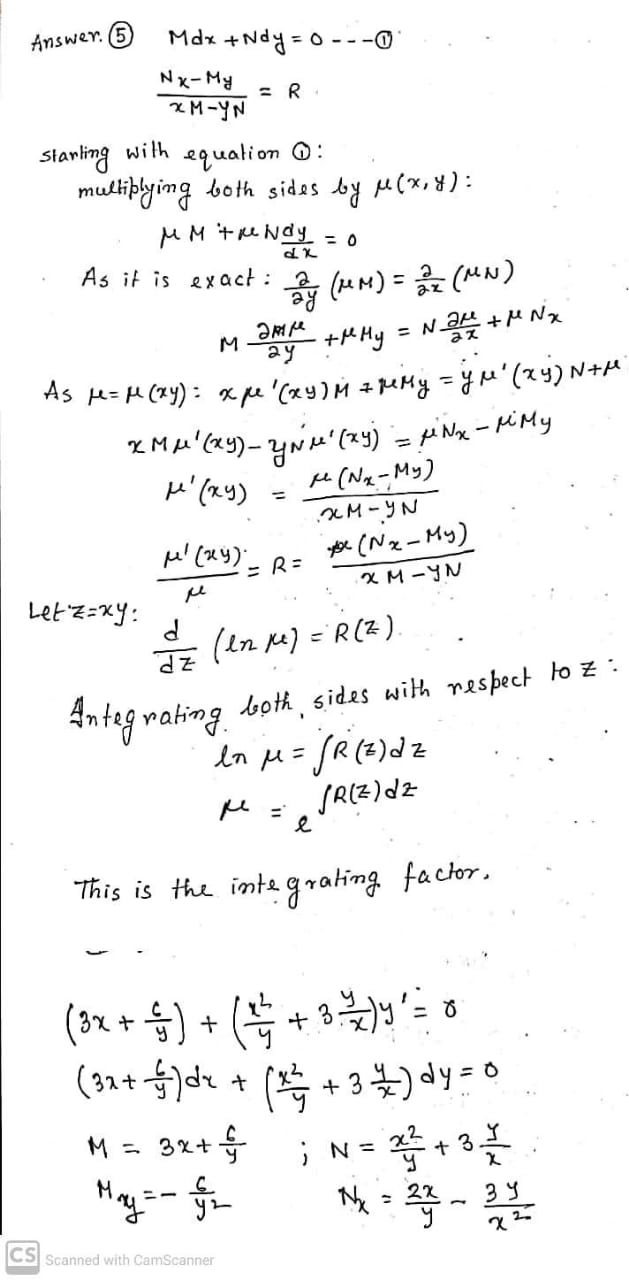 Answer. ⑤ Mdx + Ndy = 0 - - - ①
Nx - My / xM - yN = R
starting with equation ①:
multiplying both sides by μ(x, y):
μM + μN dy/dx = 0
As it is exact: ∂/∂y (μM) = ∂/∂x (μN)
M ∂μ/∂y + μMy = N ∂μ/∂x + μNx
As μ = μ(xy): xμ'(xy)M + μMy = yμ'(xy)N + μ
xMμ'(xy) - yNμ'(xy) = μNx - μMy
μ'(xy) = μ(Nx - My) / xM - yN
μ'(xy) / μ = R = (Nx - My) / xM - yN
Let z = xy:
d/dz (ln μ) = R(z)
Integrating both sides with respect to z:
ln μ = ∫R(z)dz
μ = e^∫R(z)dz
This is the integrating factor.
(3x + 6/y) + (x²/y + 3 y/x)y' = 0
(3x + 6/y)dx + (x²/y + 3 y/x)dy = 0
M = 3x + 6/y ; N = x²/y + 3 y/x
My = - 6/y² Nx = 2x/y - 3y/x²
CS Scanned with CamScanner